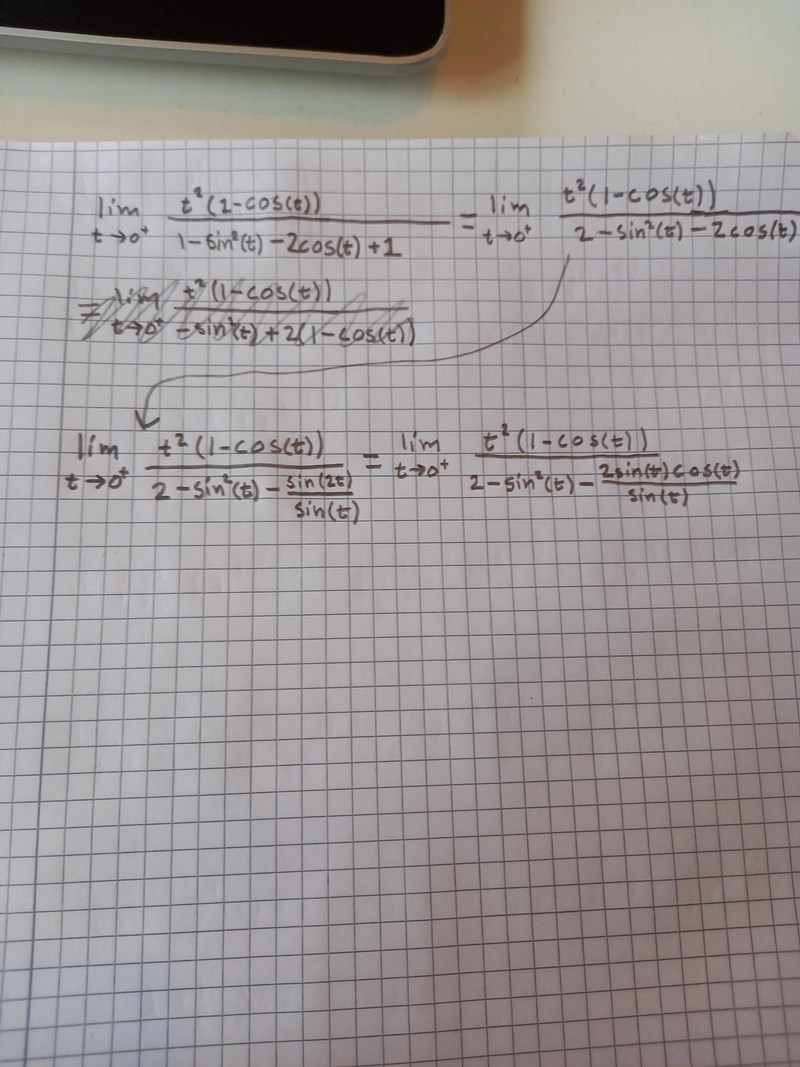 lim t→0⁺ t²(1-cos(t)) / (1-sin²(t)-2cos(t)+1) = lim t→0⁺ t²(1-cos(t)) / (2-sin²(t)-2cos(t))
= lim t→0⁺ t²(1-cos(t)) / (-sin²(t)+2(1-cos(t)))
lim t→0⁺ t²(1-cos(t)) / (2-sin²(t)-sin(2t)/sin(t)) = lim t→0⁺ t²(1-cos(t)) / (2-sin²(t)-2sin(t)cos(t)/sin(t))